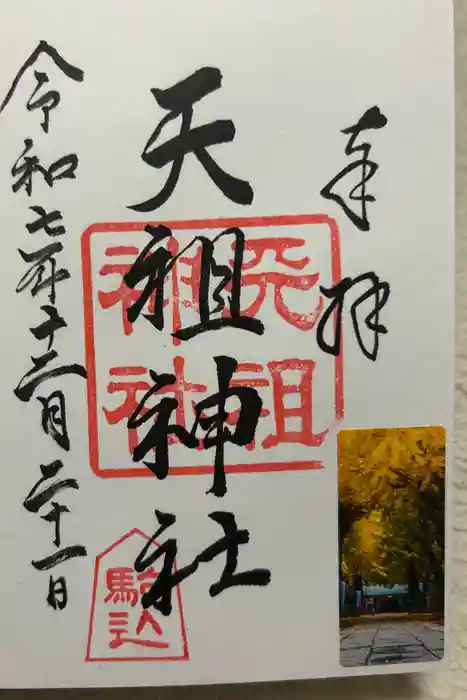 奉拝
天祖神社
天祖神社
駒込
令和七年十二月二十一日